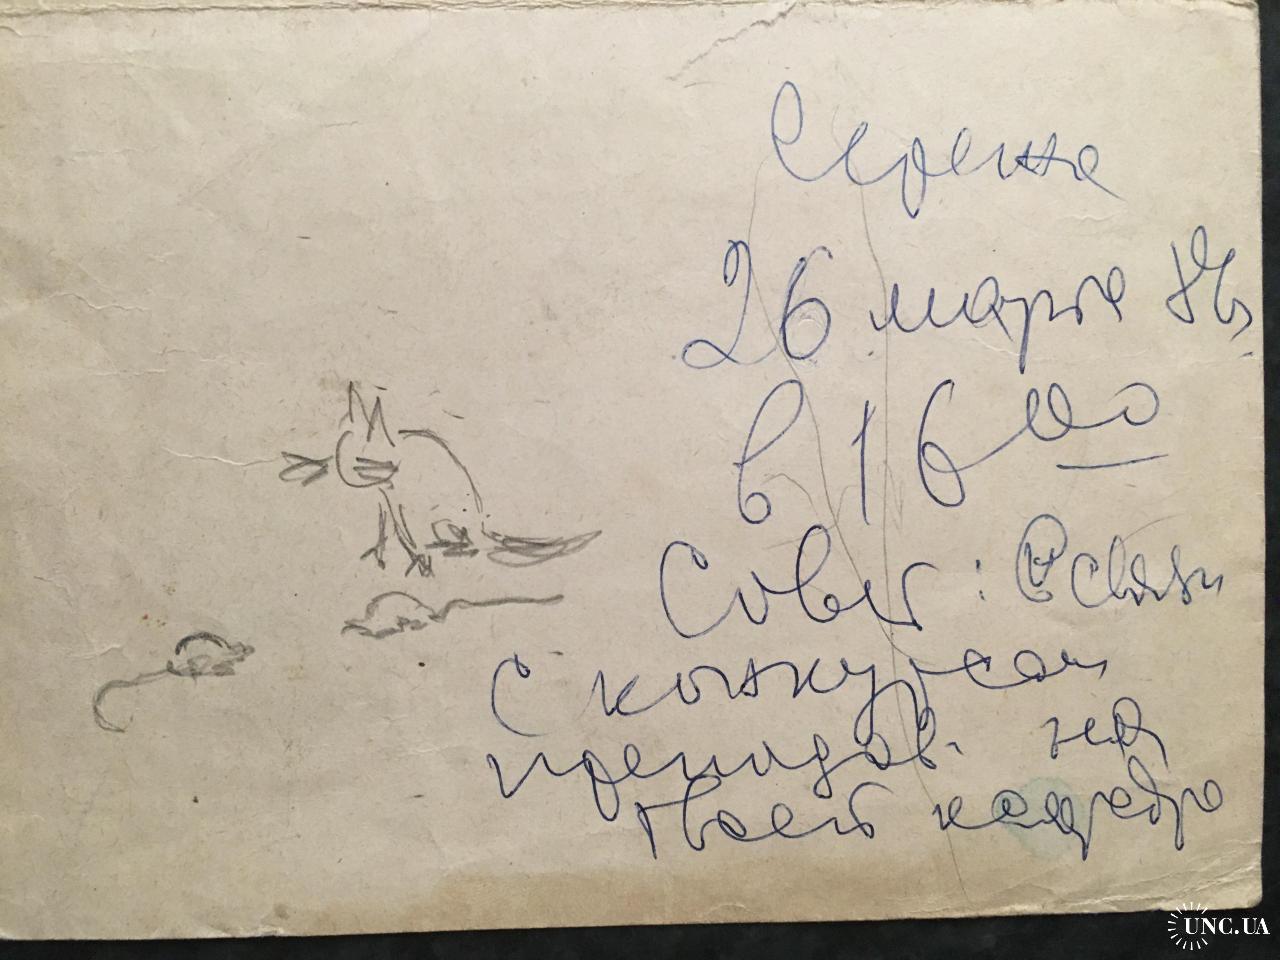 Сережа
26 марта
в 16 00
Совет: В связи
с конкурсом
преподав. на
твоей кафедре
UNC.UA